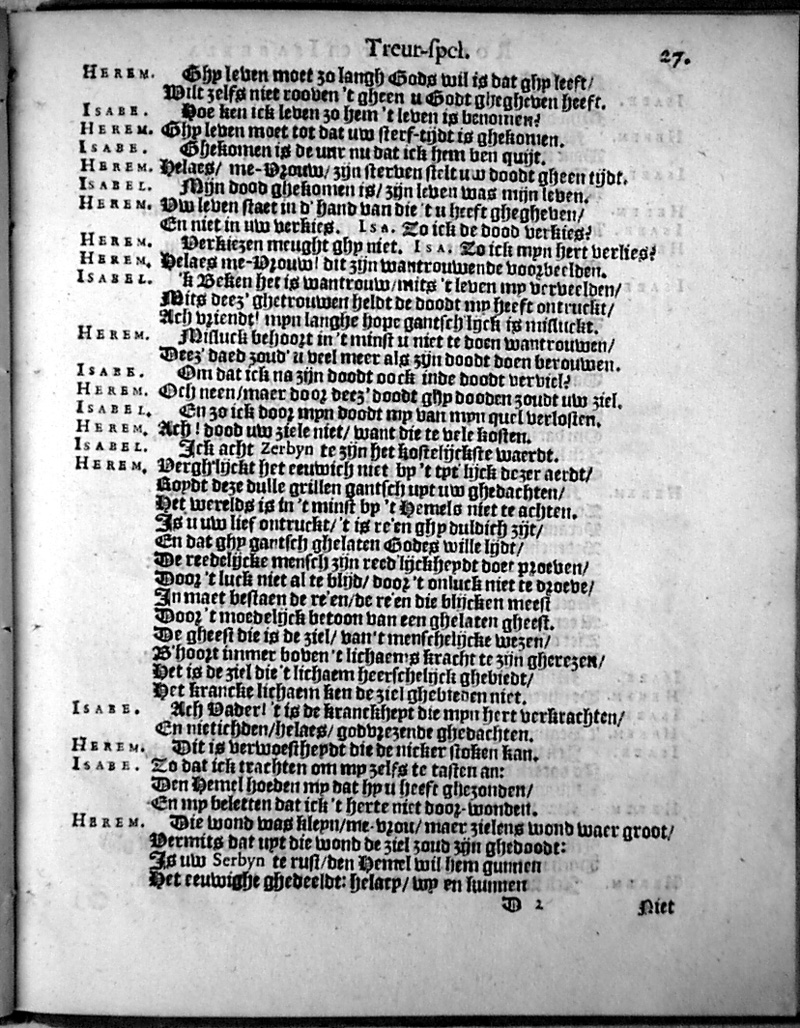 Treur-spel. 27.
HEREM. Ghy leven moet zo langh Gods wil is dat ghy leeft/
Wilt zelfs niet rooven 't gheen u Godt ghegheven heeft.
ISABE. Hoe ken ick leven zo hem 't leven is benomen?
HEREM. Ghy leven moet tot dat uw sterf-tijdt is ghekomen.
ISABE. Ghekomen is de uur nu dat ick hem ben quijt.
HEREM. Helaes/ me-Vrouw/ zijn sterven stelt uw doodt gheen tijdt.
ISABEL. Mijn dood ghekomen is/ zijn leven was mijn leven.
HEREM. Uw leven staet in d' hand van die 't u heeft ghegheven/
En niet in uw verkies. ISA. Zo ick de dood verkies?
HEREM. Verkiezen meught ghy niet. ISA. Zo ick myn hert verlies?
HEREM. Helaes me-Vrouw! dit zijn wantrouwende voorbeelden.
ISABEL. 'k Beken het is wantrouw/ mits 't leven my verbeelden/
Mits deez' ghetrouwen heldt de doodt my heeft ontruckt/
Ach vriendt! myn langhe hope gantsch lijck is misluckt.
HEREM. Misluck behoort in 't minst u niet te doen wantrouwen/
Deez' daed zoud' u veel meer als zijn doodt doen berouwen.
ISABE. Om dat ick na zijn doodt oock inde doodt verviel?
HEREM. Och neen/ maer door deez' doodt ghy dooden zoudt uw ziel.
ISABEL. En zo ick door myn doodt my van myn quel verlosten.
HEREM. Ach! dood uw ziele niet/ want die te vele kosten.
ISABEL. Ick acht Zerbyn te zijn het kostelijckste waerdt.
HEREM. Vergh'lijckt het eeuwich niet by 't tyt'lijck dezer aerdt/
Roydt deze dulle grillen gantsch uyt uw ghedachten/
Het werelds is in 't minst by 't Hemels niet te achten.
Is u uw lief ontruckt/ 't is re'en ghy duldich zijt/
En dat ghy gantsch ghelaten Godes wille lijdt/
De reedelijcke mensch zijn reed'lijckheydt doet proeven/
Door 't luck niet al te blijd/ door 't onluck niet te droeve/
In maet bestaen de re'en/ de re'en die blijcken meest
Door 't moedelijck betoon van een ghelaten gheest.
De gheest die is de ziel/ van 't menschelijcke wezen/
B'hoort immer boven 't lichaems kracht te zijn gherezen/
Het is de ziel die 't lichaem heerschelijck ghebiedt/
Het krancke lichaem ken de ziel ghebieden niet.
ISABE. Ach Vader! 't is de kranckheyt die myn hert verkrachten/
En nietichden/ helaes/ godvrezende ghedachten.
HEREM. Dit is verwoestheydt die de nicker stoken kan.
ISABE. Zo dat ick trachten om my zelfs te tasten an:
Den Hemel hoeden my dat hy u heeft ghezonden/
En my beletten dat ick 't herte niet door-wonden.
HEREM. Die wond was kleyn/ me-vrou/ maer zielens wond waer groot/
Vermits dat uyt die wond de ziel zoud zijn ghedoodt:
Is uw Serbyn te rust/ den Hemel wil hem gunnen
Het eeuwighe ghedeeldt: helacy/ wy en kunnen
D 2 Niet